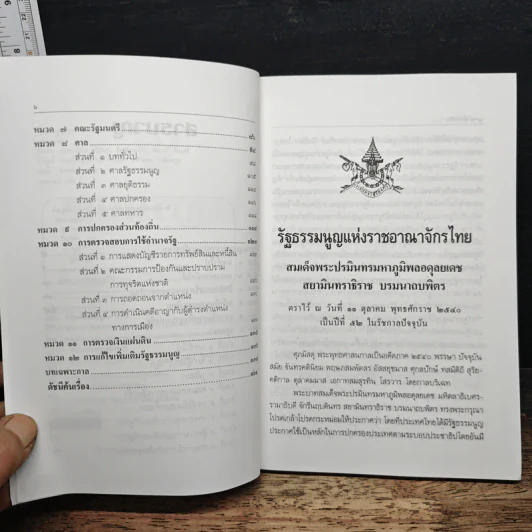 หมวด ๗ คณะรัฐมนตรี
หมวด ๘ ศาล
ส่วนที่ ๑ บททั่วไป
ส่วนที่ ๒ ศาลรัฐธรรมนูญ
ส่วนที่ ๓ ศาลยุติธรรม
ส่วนที่ ๔ ศาลปกครอง
ส่วนที่ ๕ ศาลทหาร
หมวด ๙ การปกครองส่วนท้องถิ่น
หมวด ๑๐ การตรวจสอบการใช้อำนาจรัฐ
ส่วนที่ ๑ การแสดงบัญชีรายการทรัพย์สินและหนี้สิน
ส่วนที่ ๒ คณะกรรมการป้องกันและปราบปราม
การทุจริตแห่งชาติ
ส่วนที่ ๓ การถอดถอนจากตำแหน่ง
ส่วนที่ ๔ การดำเนินคดีอาญากับผู้ดำรงตำแหน่ง
ทางการเมือง
หมวด ๑๑ การตรวจเงินแผ่นดิน
หมวด ๑๒ การแก้ไขเพิ่มเติมรัฐธรรมนูญ
บทเฉพาะกาล
ดัชนีค้นเรื่อง
รัฐธรรมนูญแห่งราชอาณาจักรไทย
สมเด็จพระปรมินทรมหาภูมิพลอดุลยเดช
สยามินทราธิราช บรมนาถบพิตร
ตราไว้ ณ วันที่ ๑๑ ตุลาคม พุทธศักราช ๒๕๔๐
เป็นปีที่ ๕๒ ในรัชกาลปัจจุบัน
ศุภมัสดุ พระพุทธศาสนกาลเป็นอดีตภาค ๒๕๔๐ พรรษา ปัจจุบัน
สมัย จันทรคตินิยม พฤษภสมพัตสร อัสสยุชมาส ศุกลปักษ์ ทสมีดิถี สุริย
คติกาล ตุลาคมมาส เอกาทสมสุรทิน โสรวาร โดยกาลบริเฉท
พระบาทสมเด็จพระปรมินทรมหาภูมิพลอดุลยเดช มหิตลาธิเบศร
รามาธิบดี จักรีนฤบดินทร สยามินทราธิราช บรมนาถบพิตร ทรงพระกรุณา
โปรดเกล้าโปรดกระหม่อมให้ประกาศว่า โดยที่ประเทศไทยได้มีรัฐธรรมนูญ
ประกาศใช้เป็นหลักในการปกครองประเทศตามระบอบประชาธิปไตยอันมี